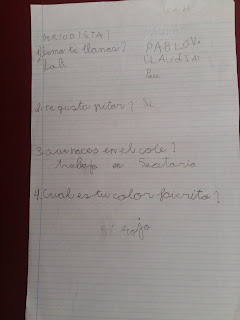 PERIODISTA:
PABLO V.
1. como te llamas?
CLAUDIA
Paco
2. te gusta pitar? Si
3. que haces en el cole?
trabajo en Secretaria
4. Cual es tu color faerito?
El rojo